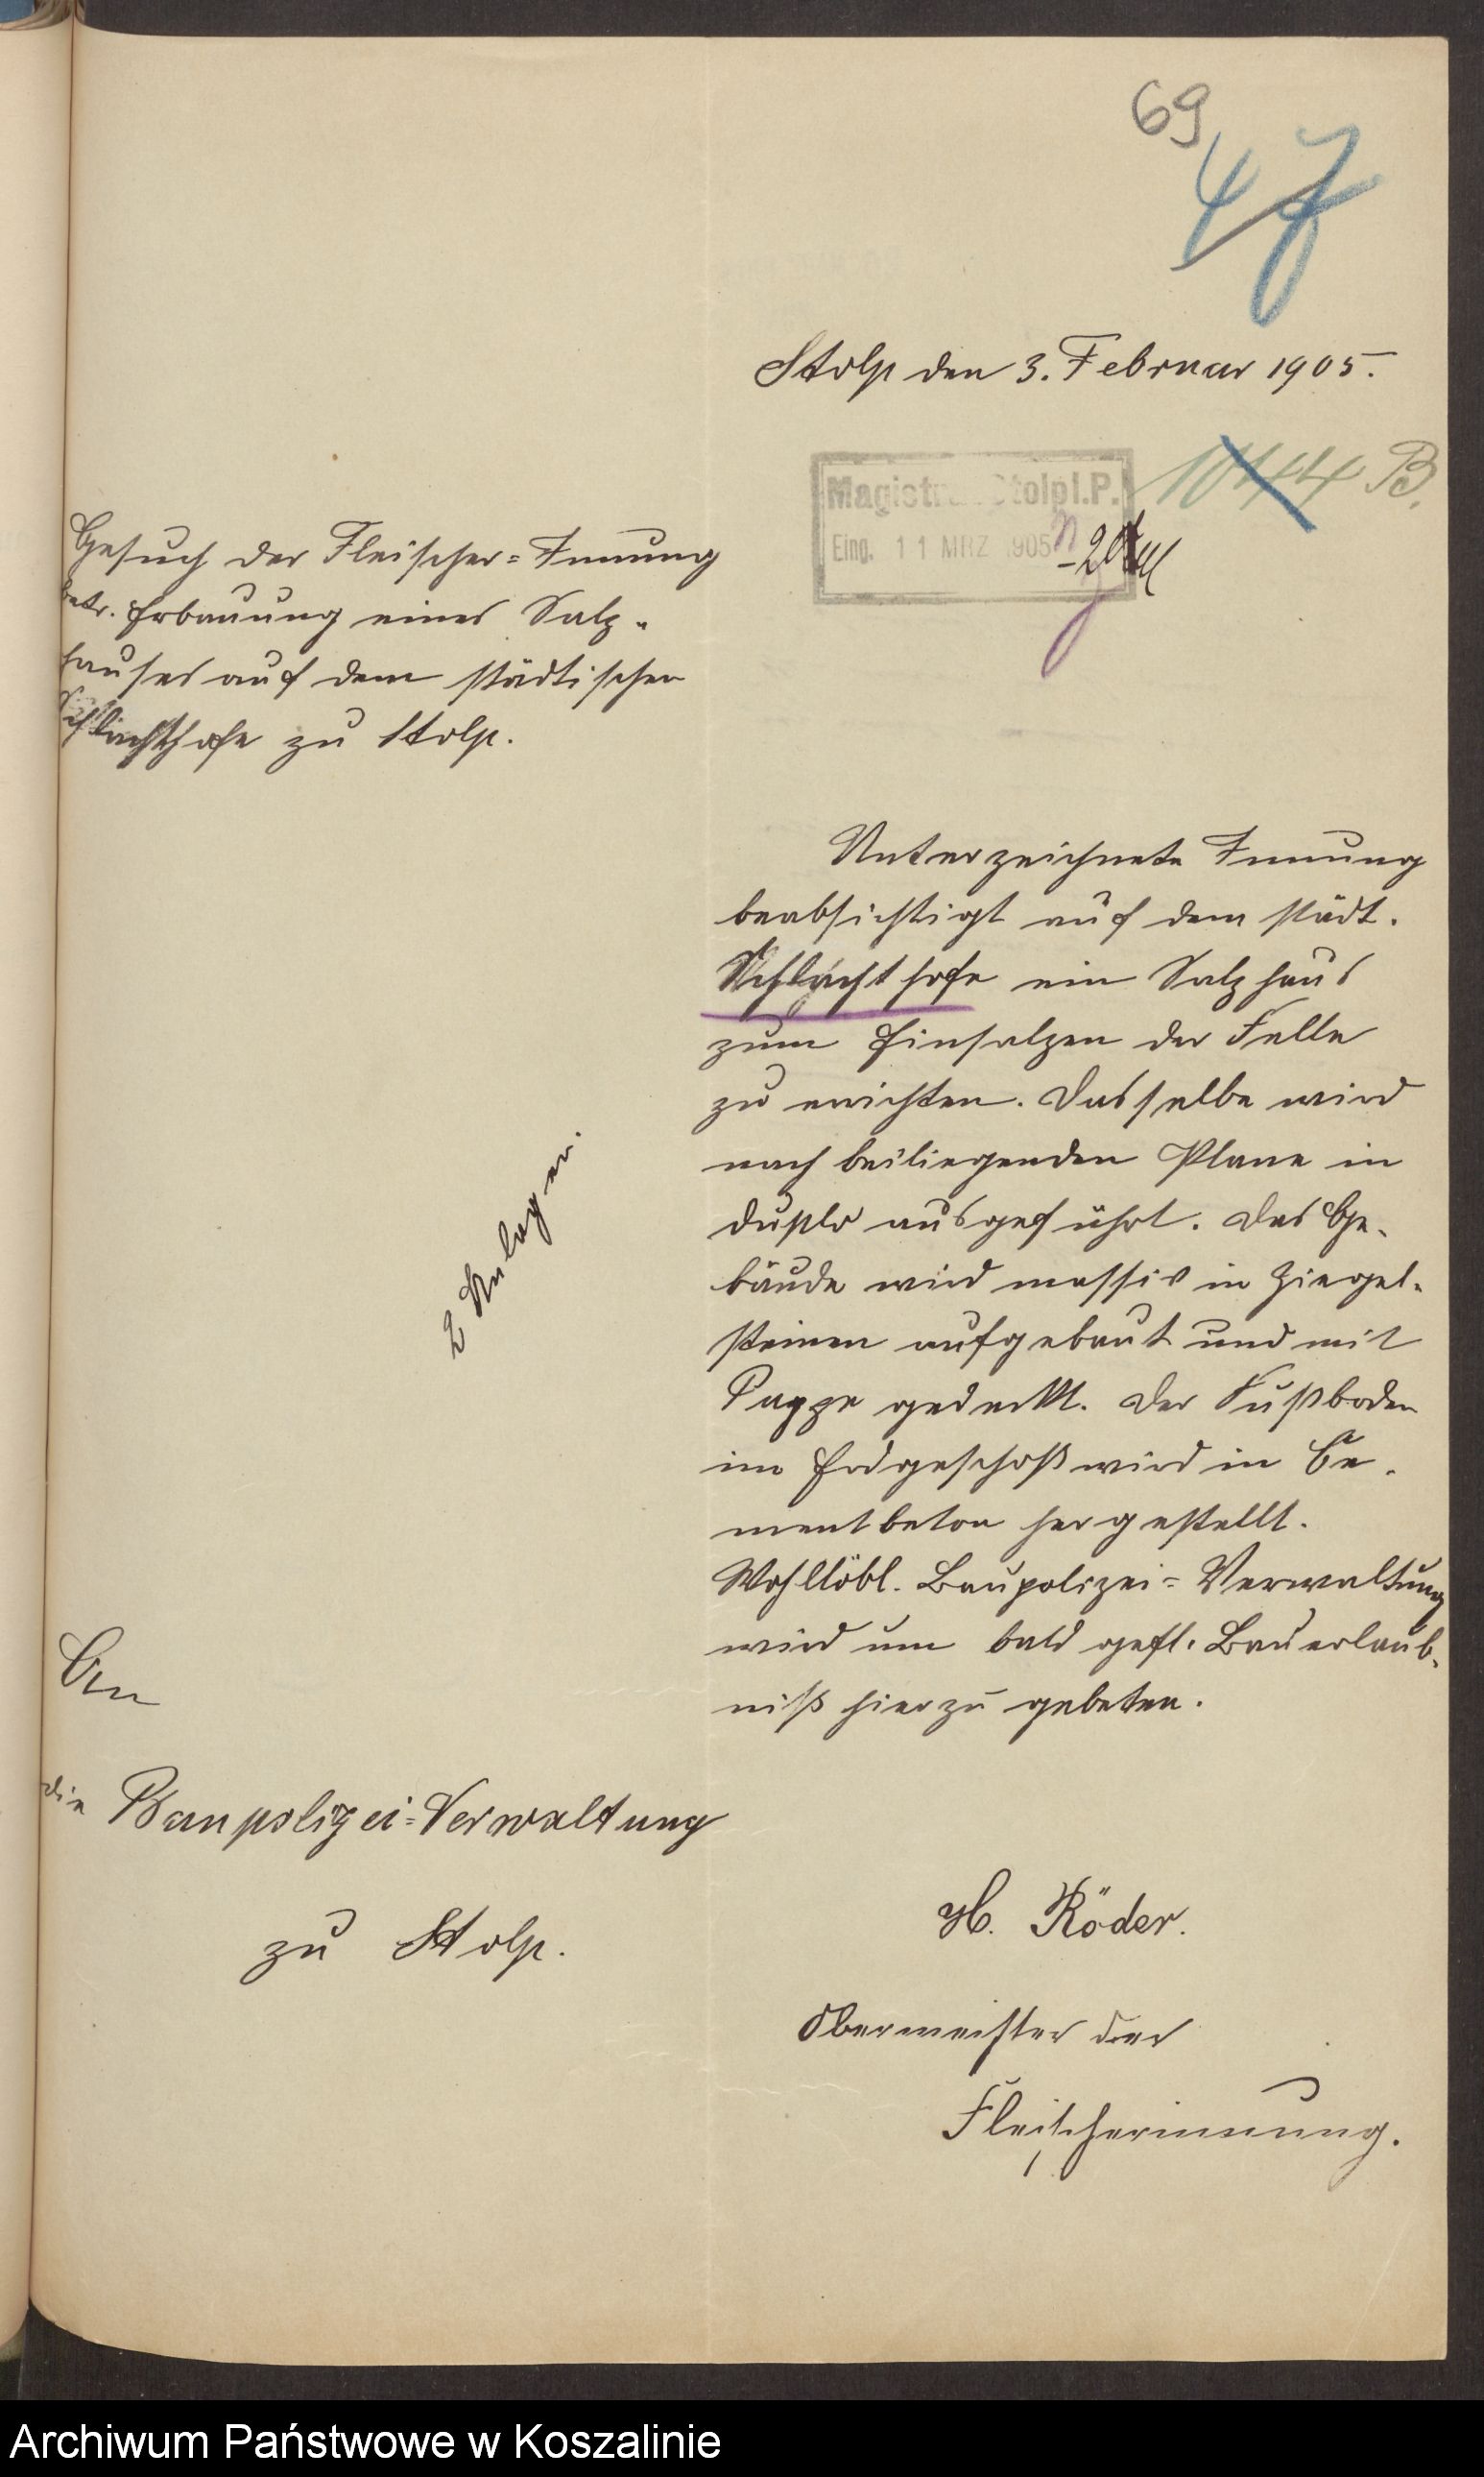 69
47
Stolp den 3. Februar 1905.
Magistrat Stolp i.P.
Eing. 11 MRZ 1905
1044 B.
Gesuch der Fleischer=Innung
betr. Erbauung eines Salz-
hauses auf dem städtischen
Schlachthofe zu Stolp.
Unterzeichnete Innung
beabsichtigt auf dem städt.
Schlachthofe ein Salzhaus
zum Einsalzen der Felle
zu errichten. Dasselbe wird
nach beiliegenden Plane in
duplo ausgeführt. Das Ge-
bäude wird massiv in Ziegel-
steinen aufgebaut und mit
Pappe gedeckt. Der Fußboden
im Erdgeschoß wird in Ce-
mentbeton hergestellt.
Wohllöbl. Baupolizei=Verwaltung
wird um bald gefl. Bauerlaub-
niß hierzu gebeten.
2 Anlagen.
An
die Baupolizei=Verwaltung
zu Stolp.
H. Röder.
Obermeister der
Fleischerinnung.
Archiwum Państwowe w Koszalinie